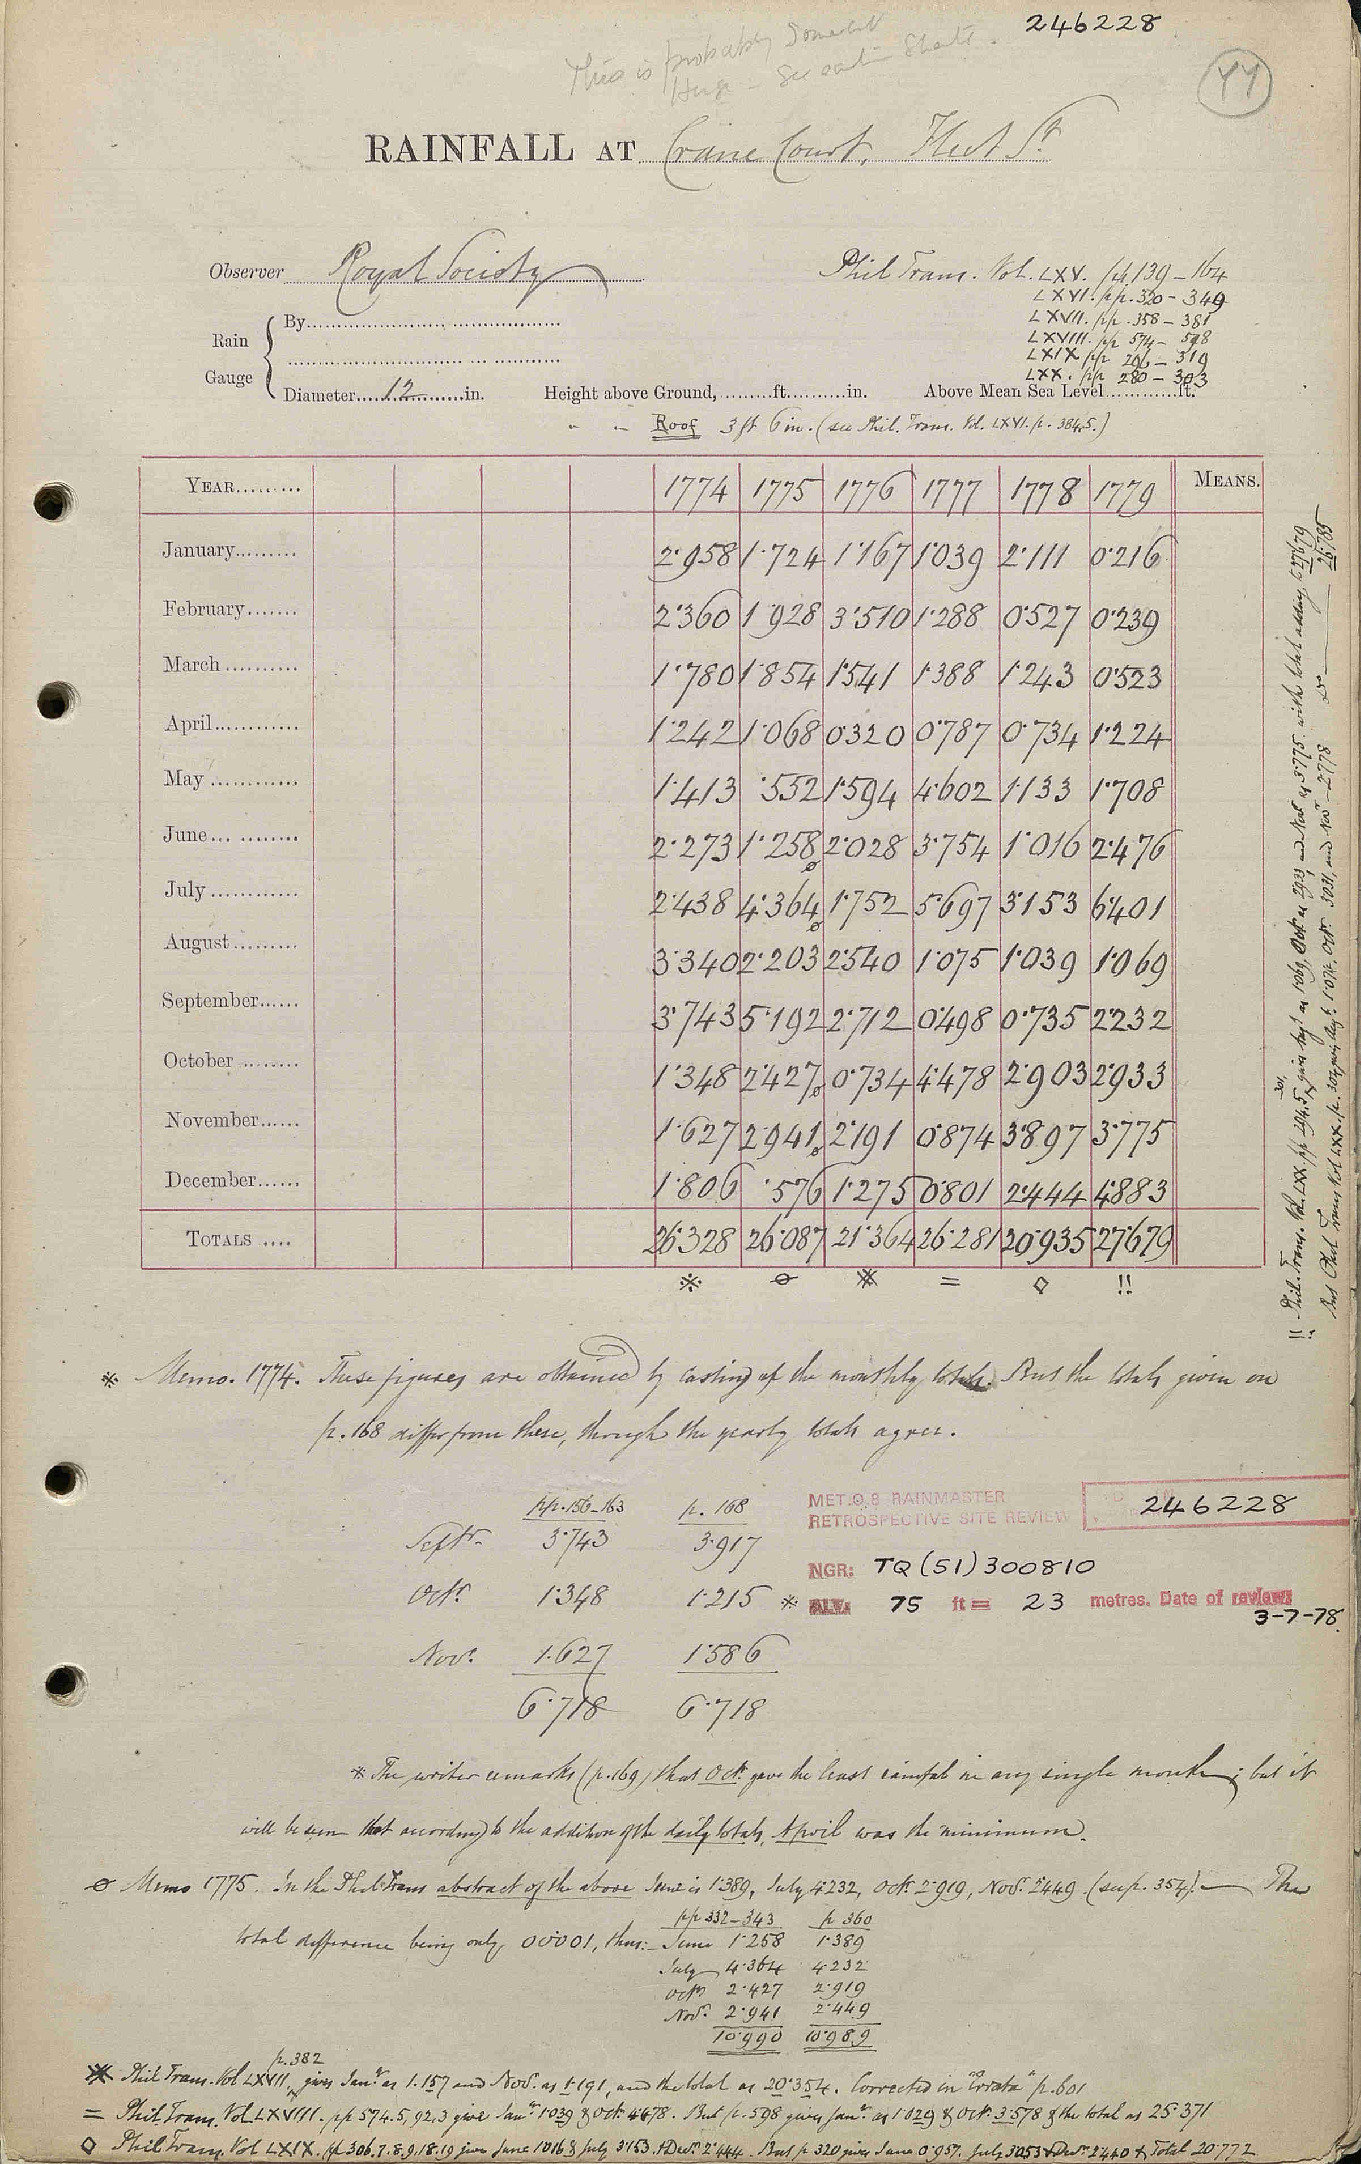 246228
This is probably Somerset
House - See earlier Sheets.
44
RAINFALL AT Crane Court, Fleet St.
Observer Royal Society
Phil Trans. Vol. LXV. pp 139-164
LXVI. pp. 320-349
LXVII. pp. 358-381
LXVIII. pp 574-598
LXIX. pp 296-319
LXX. pp 280-303
Rain Gauge { By
Diameter 12 in. Height above Ground, ft. in. Above Mean Sea Level ft.
" " Roof 3 ft 6 in. (see Phil. Trans. Vol. LXVI. p. 384,5.)
YEAR 1774 1775 1776 1777 1778 1779 MEANS.
January 2·958 1·724 1·167 1·039 2·111 0·216
February 2·360 1·928 3·510 1·288 0·527 0·239
March 1·780 1·854 1·541 1·388 1·243 0·523
April 1·242 1·068 0·320 0·787 0·734 1·224
May 1·413 ·552 1·594 4·602 1·133 1·708
June 2·273 1·258 ø 2·028 3·754 1·016 2·476
July 2·438 4·364 ø 1·752 5·697 3·153 6·401
August 3·340 2·203 2·540 1·075 1·039 1·069
September 3·743 5·192 2·712 0·498 0·735 2·232
October 1·348 2·427 ø 0·734 4·478 2·903 2·933
November 1·627 2·941 ø 2·191 0·874 3·897 3·775
December 1·806 ·576 1·275 0·801 2·444 4·883
TOTALS 26·328 26·087 21·364 26·281 20·935 27·679
※ ø ※ = ◊ !!
!! Phil. Trans. Vol. LXX. pp 294,5, 301, give Augt as 1·069, Oct. as 2·933, and Nov. as 3·775, with total adding to 27·679
But Phil Trans Vol. LXX. p. 304 gives Augt 1·074, Octr 3·031, and Novr 2·778 do 26·785
※ Memo. 1774. These figures are obtained by casting up the monthly totals. But the totals given on
p. 168 differ from these, though the yearly totals agree.
pp. 156-163 p. 168
Septr. 3·743 3·917
Octr. 1·348 1·215 ※
Novr. 1·627 1·586
6·718 6·718
MET.O.8 RAINMASTER
RETROSPECTIVE SITE REVIEW 246228
NGR: TQ (51) 300810
ALT: 75 ft = 23 metres. Date of review: 3-7-78.
※ The writer remarks (p. 169) that Octr. gave the least rainfall in any single month; but it
will be seen that according to the addition of the daily totals, April was the minimum.
ø Memo 1775. In the Phil Trans abstract of the above June is 1·389, July 4·232, Octr. 2·919, Novr. 2·449 (see p. 354). — The
total difference being only 00·001, thus:-
pp 332-343 p 360
June 1·258 1·389
July 4·364 4·232
Octr 2·427 2·919
Novr. 2·941 2·449
10·990 10·989
※ Phil Trans. Vol LXVII, p. 382 gives Jany as 1.157 and Nov. as 1·191, and the total as 20·354. Corrected in "Errata" p. 601
= Phil. Trans. Vol. LXVIII. pp 574.5, 92,3 give Jany 1·039 & Oct. 4·478. But p. 598 gives Jany. as 1·029 & Oct. 3·578 & the total as 25·371
◊ Phil Trans. Vol LXIX. pp 306.7.8.9.18.19 give June 1·016 & July 3·153. & Decr. 2·444. But p 320 gives June 0·957. July 3·053 & Decr. 2·440 & Total 20·772